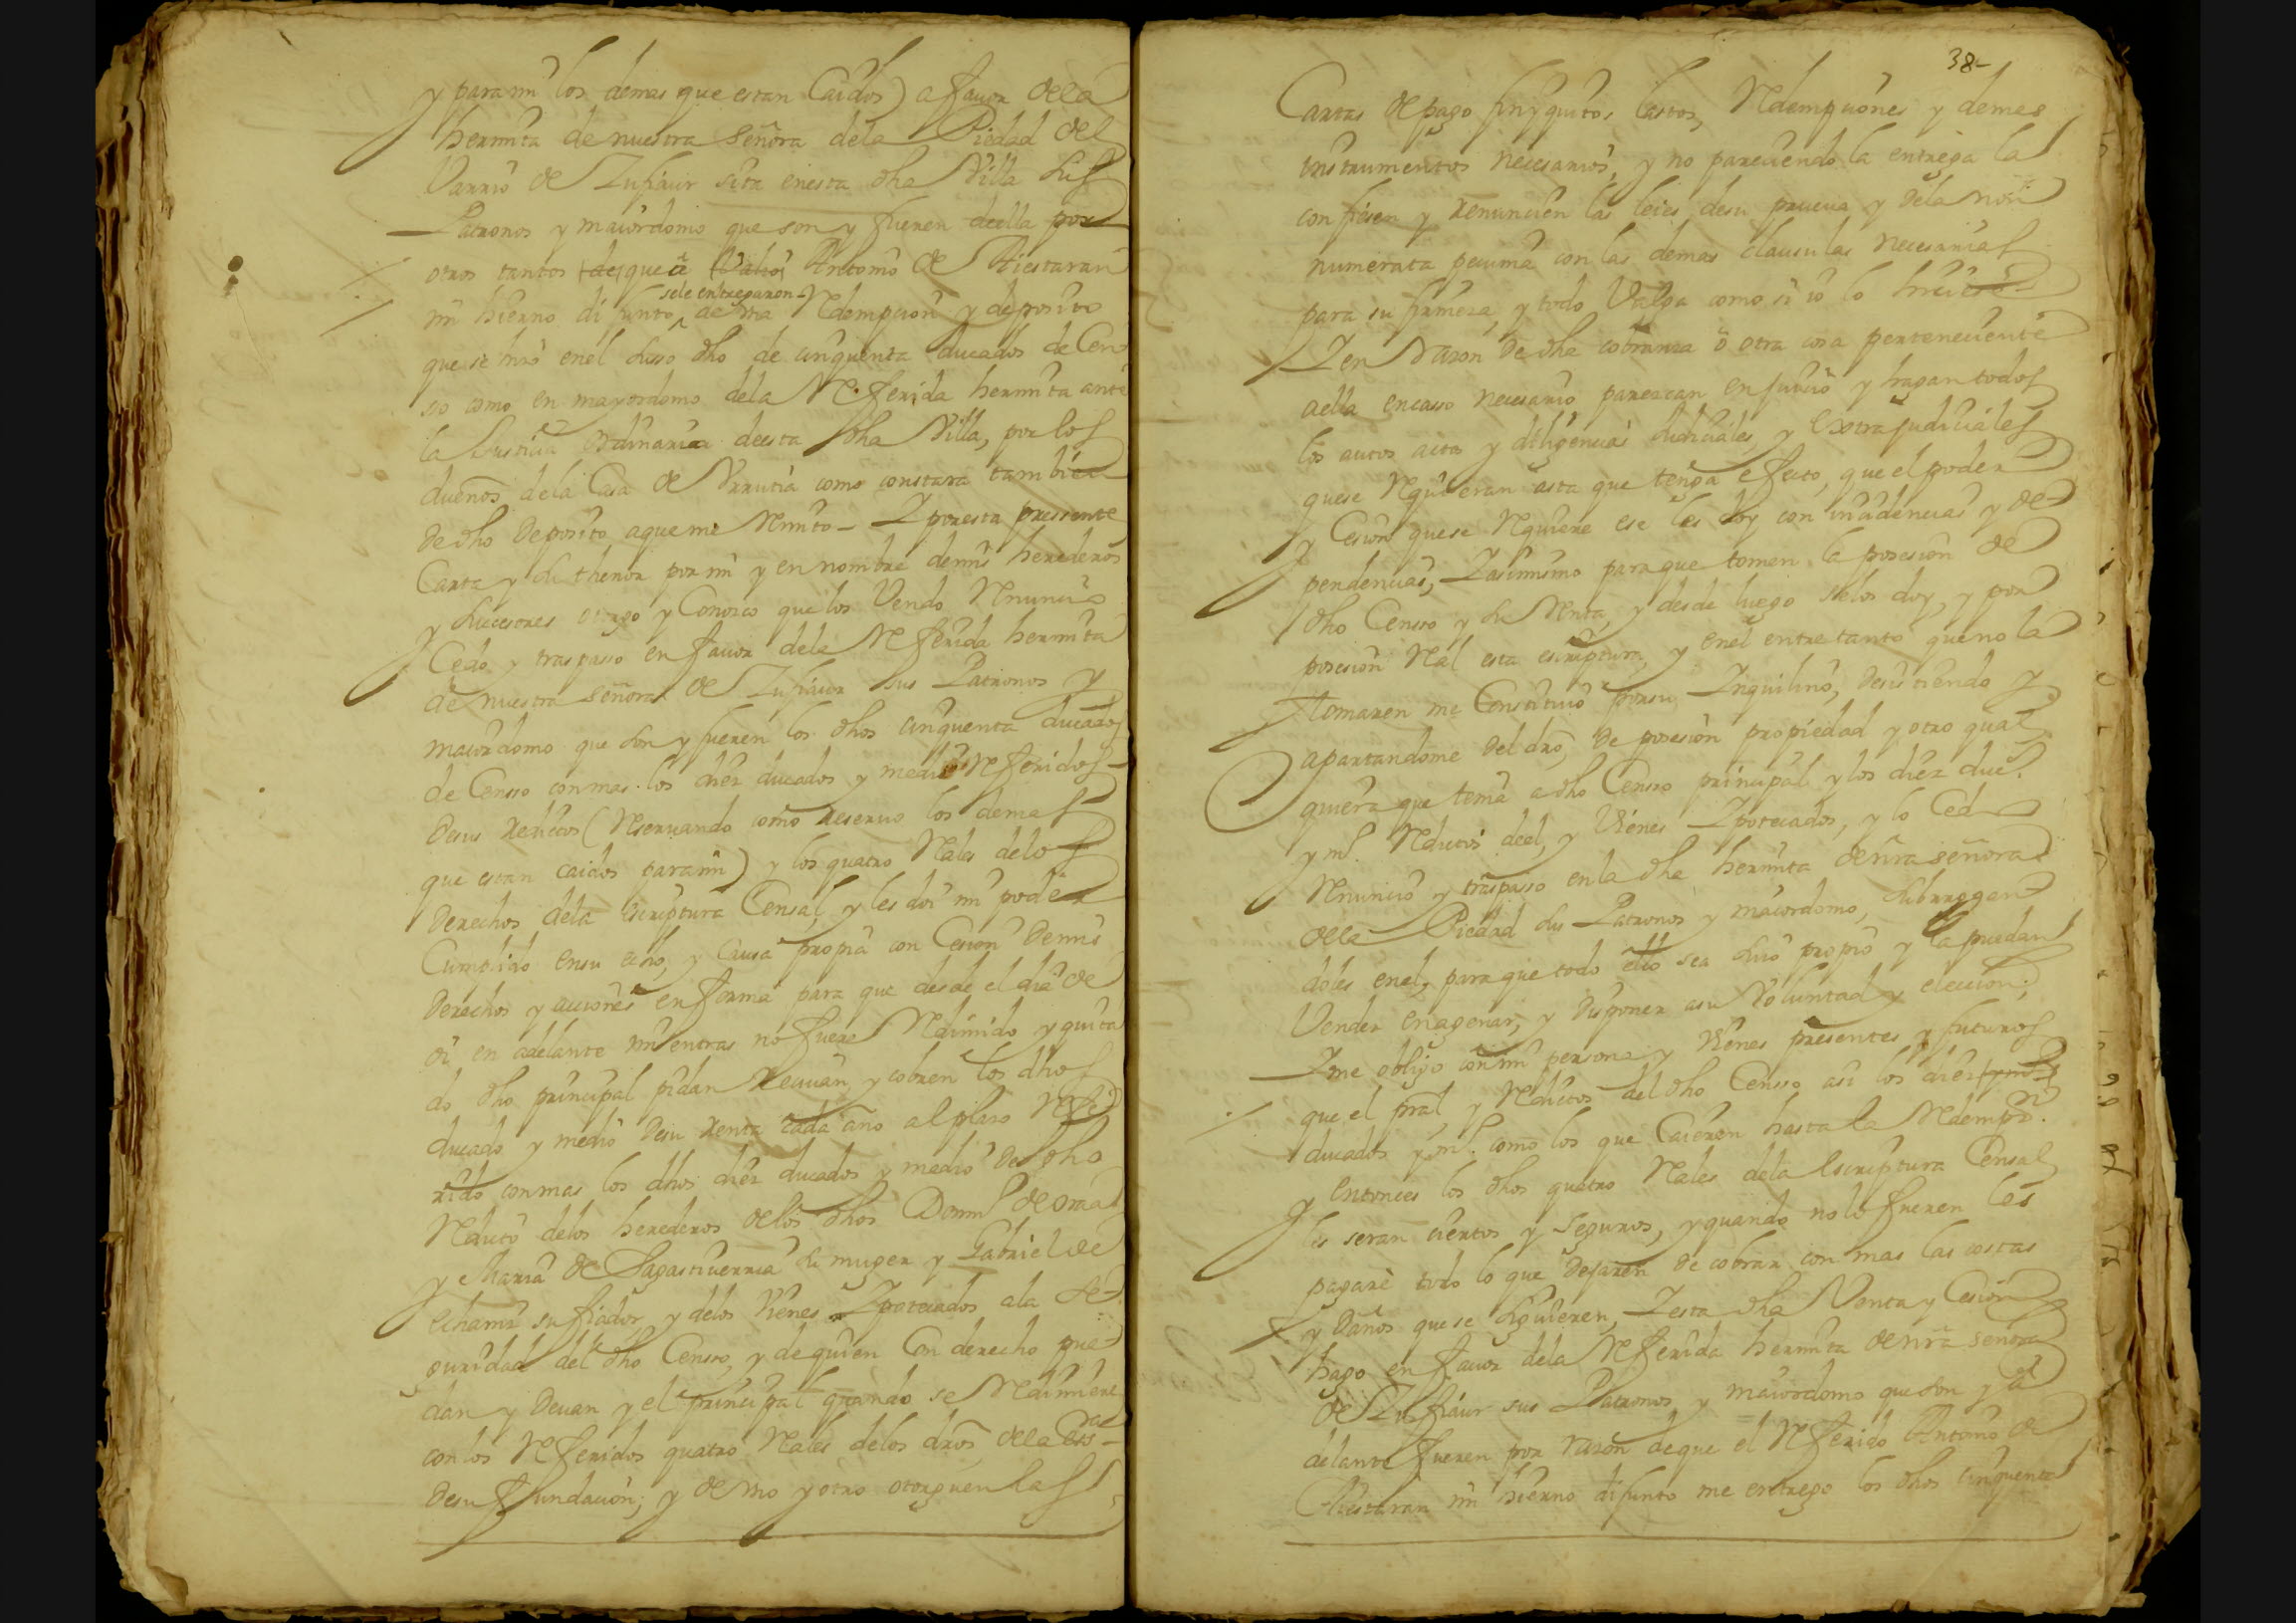 y para mi los demas que estan Caidos) a fauor dela
hermita de nuestra señora dela Piedad del
Varrio de Zufiaur sita enesta dha Villa sus
Patronos y maiordomo que son y fueren deella por
otros tantos que a Antonio de Aiestaran
sele entregaron
mi hierno difunto de vna Redempcion y deposito
que se hizo enel susso dho de cinquenta ducados de Cen
so como en mayordomo dela Referida hermita ante
la Justicia ordinaria deesta dha Villa, por los
dueños dela Casa de Vrrutia como constara tambien
de dho deposito aque me Remito - Y poresta pressente
Carta y su thenor por mi y en nombre demis herederos
y subcesores otorgo y Conozco que los Vendo Renuncio
Cedo y traspasso en fauor dela Referida hermita
de nuestra señora de Zufiaur sus Patronos y
maiordomo que son y fueren los dhos cinquenta ducados
de Censso conmas los diez ducados y medio Referidos
desus reditos (Reseruando como reseruo los demas
que estan caidos para mi) y los quatro Rales delos
derechos dela escriptura Censal, y les doi mi poder
Cumplido ensu echo, y Causa propia con Cesion demis
derechos y acciones en forma para que desde el dia de
oi en adelante mientras no fuere Redimido y quita
do dho principal pidan Reciuan y cobren los dhos
ducado y medio desu renta cada año al plazo Refe
rido conmas los dhos diez ducados y medio de dho
Redito delos herederos delos dhos Domin.^o de oraa
y Maria de Sagastiuerria su muger y Gabriel de
echaniz su fiador, y delos Vienes Ypotecados ala se
guridad del dho Censso, y de quien Con derecho pue
dan y Deuan y el principal quando se Redimiere
con los Referidos quatro Rales delos dros dela Ess^ra
desu fundacion, y de vno y otro otorguen las
38-
Cartas de pago finyquitos lastos, Redempciones y demas
instrumentos necesarios, y no pareciendo la entrega la
confiesen y renuncien las leies desu prueua y dela non
numerata pecunia con las demas clausulas necesarias
para su firmeza, y todo Valga como si io lo hiciese
Y en Razon de dha cobranza o otra cosa perteneciente
aella encasso necesario parezcan en juicio y hagan todos
los autos actos y diligencias Judiciales, y Extrajudiciales
quese Requieran asta que tenga efecto, que el poder
y Cesion quese Requiere ese les doy con incidencias y de
pendencias, Y asimismo para que tomen la posesion de
dho Censso y su Renta, y desde luego selos doy, y por
posesion Ral esta escriptura, y enel entretanto que no la
tomaren me Constituio porsu Ynquilino, desistiendo y
apartandome del dro, de posesion propiedad y otro qual
quiera que tenia a dho Censso principal y los diez duc.^s
y m.^o Reducios deel, y Vienes Ypotecados, y lo Cedo
Renuncio y traspasso enla dha hermita de nra señora
dela Piedad sus Patronos y maiordomo, subrrogan
doles enel, para que todo ello sea suio propio y la puedan
Vender enagenar, y disponer asu Voluntad y eleccion;
Y me obligo con mi persona y Vienes presentes y futuros
que el pral, y Reditos del dho Censso asi los diez
ducados y m.^o como los que Caieron hasta la Redempn.
y entonces los dhos quatro Rales dela Escriptura Censal
les seran ciertos y seguros, y quando no lo fueren les
pagare todo lo que dejaren de cobrar con mas las costas
y daños que se siguieren, Y esta dha Venta y Cesion
hago en fauor dela Referida hermita de nra señora
de Zufiaur sus Patronos y maiordomo que son y a
delante fueren por razon deque el Referido Antonio de
Aiestaran mi hierno difunto me entrego los dhos cinquenta